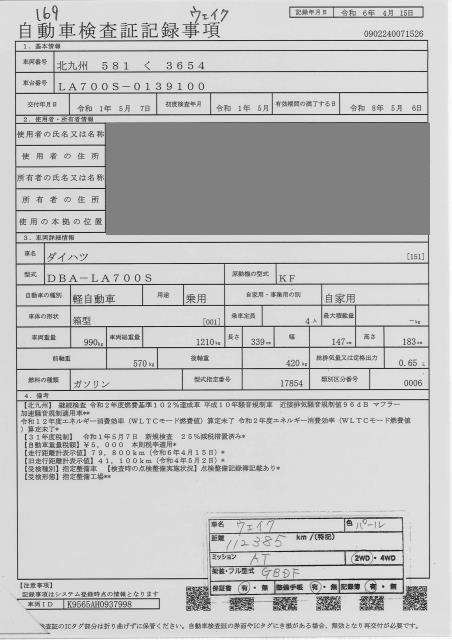 169
ウェイク
記録年月日 令和 6年 4月 15日
自動車検査証記録事項
0902240071526
1．基本情報
車両番号 北九州 581 く 3654
車台番号 LA700S-0139100
交付年月日 令和 1年 5月 7日 初度検査年月 令和 1年 5月 有効期間の満了する日 令和 8年 5月 6日
2．使用者・所有者情報
使用者の氏名又は名称
使用者の住所
所有者の氏名又は名称
所有者の住所
使用の本拠の位置
3．車両詳細情報
車名 ダイハツ [151]
型式 DBA-LA700S 原動機の型式 KF
自動車の種別 軽自動車 用途 乗用 自家用・事業用の別 自家用
車体の形状 箱型 [001] 乗車定員 4人 最大積載量 -kg
車両重量 990kg 車両総重量 1210kg 長さ 339cm 幅 147cm 高さ 183cm
前軸重 570kg 後軸重 420kg 総排気量又は定格出力 0.65L
燃料の種類 ガソリン 型式指定番号 17854 類別区分番号 0006
4．備考
【北九州】 継続検査 令和2年度燃費基準102％達成車 平成10年騒音規制車 近接排気騒音規制値96dB マフラー
加速騒音規制適用車**
令和12年度エネルギー消費効率（WLTCモード燃費値）算定未了 令和2年度エネルギー消費効率（WLTCモード燃費値
）算定未了*
【31年度税制】 令和1年5月7日 新規検査 25％減税措置済み*
【自動車重量税額】￥5,000 本則税率適用*
【走行距離計表示値】79,800km（令和6年4月15日）*
【旧走行距離計表示値】41,100km（令和4年5月2日）*
【受検種別】指定整備車 【検査時の点検整備実施状況】点検整備記録簿記載あり*
【受検形態】指定整備工場*
車名 ウェイク 色 パール
距離 112385 km/(不明)
ミッション AT 2WD・4WD
架装・フル型式 GBDF
保証書 有・無 整備手帳 有・無 記録簿 有・無
【注意事項】
記録事項はシステム登録時点の情報となります
車両ID K9565AH0937998
査証のICタグ部分は折り曲げずに保管ください。自動車検査証の券面やICタグにき損がある場合、無効となり再交付が必要です。